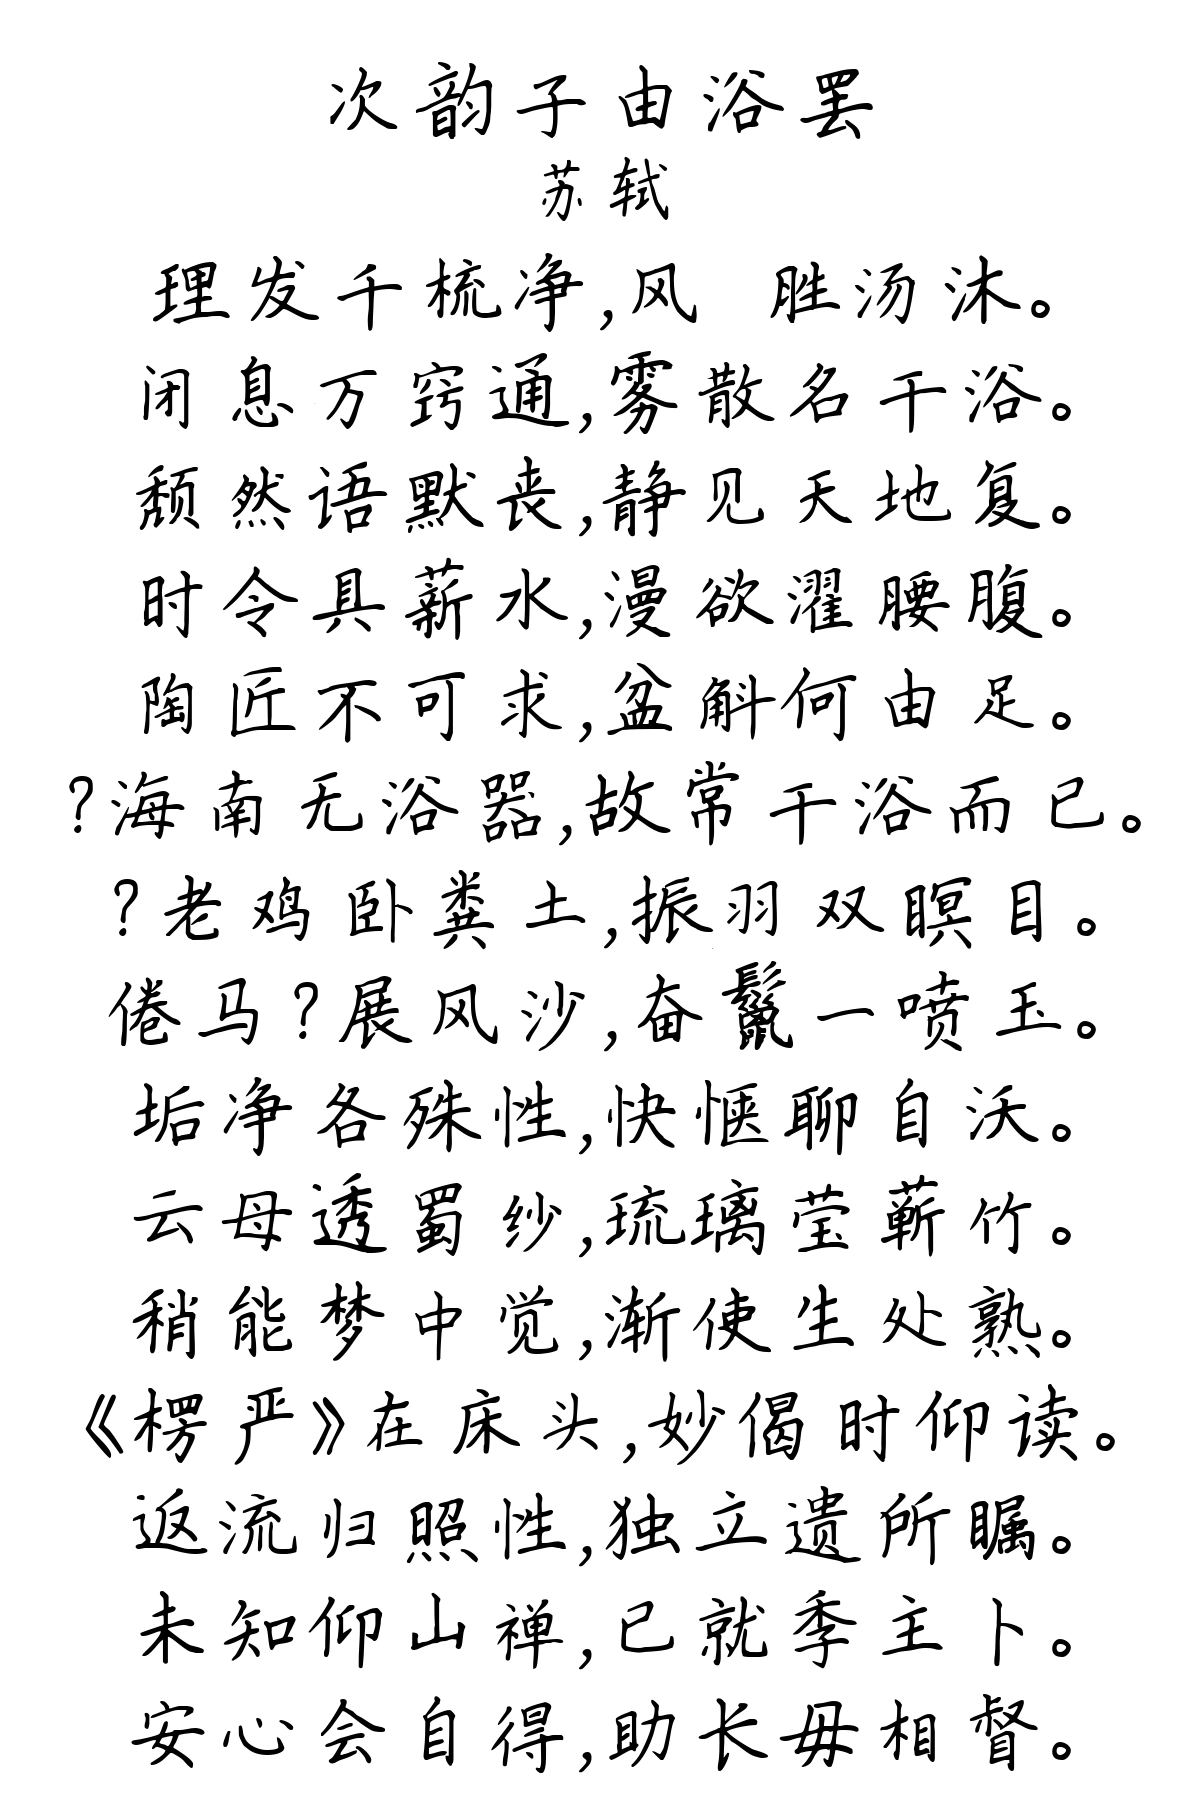 次韵子由浴罢
苏轼
理发千梳净,风 胜汤沐。
闭息万窍通,雾散名干浴。
颓然语默丧,静见天地复。
时令具薪水,漫欲濯腰腹。
陶匠不可求,盆斛何由足。
?海南无浴器,故常干浴而已。
?老鸡卧粪土,振羽双瞑目。
倦马?展风沙,奋鬣一喷玉。
垢净各殊性,快惬聊自沃。
云母透蜀纱,琉璃莹蕲竹。
稍能梦中觉,渐使生处熟。
《楞严》在床头,妙偈时仰读。
返流归照性,独立遗所瞩。
未知仰山禅,已就季主卜。
安心会自得,助长毋相督。